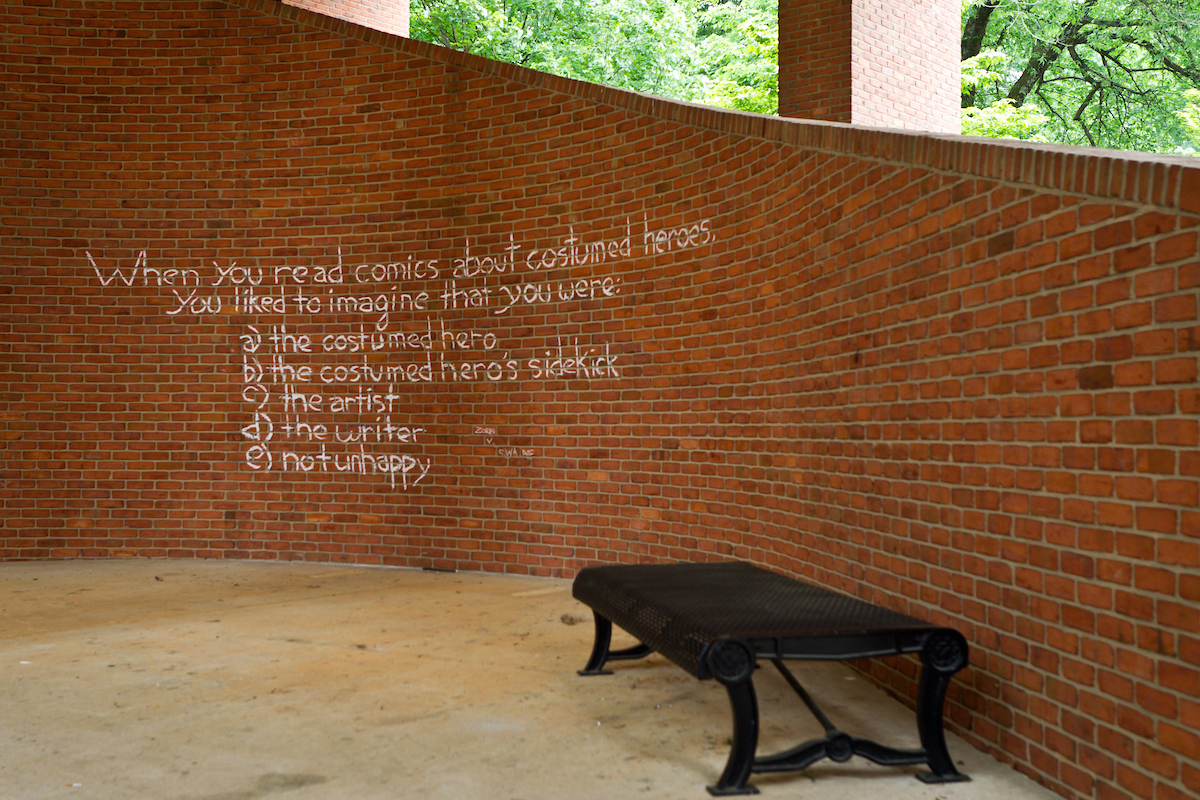 When you read comics about costumed heroes,
you liked to imagine that you were:
a) the costumed hero
b) the costumed hero's sidekick
c) the artist
d) the writer
e) not unhappy